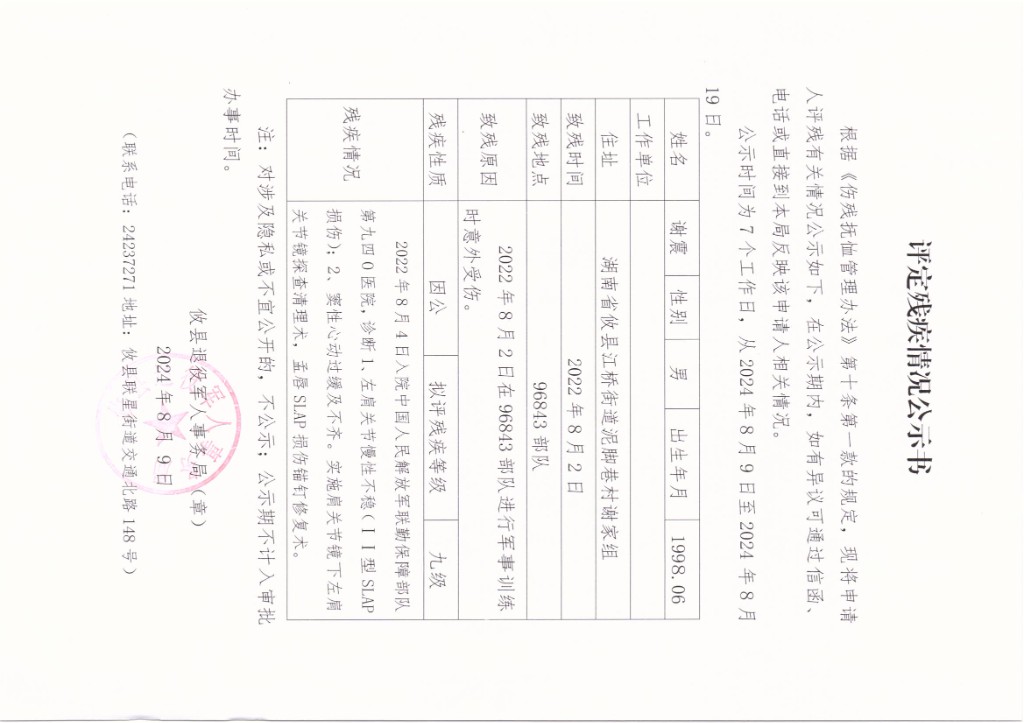 评定残疾情况公示书
根据《伤残抚恤管理办法》第十条第一款的规定，现将申请
人评残有关情况公示如下，在公示期内，如有异议可通过信函、
电话或直接到本局反映该申请人相关情况。
公示时间为 7 个工作日，从 2024 年 8 月 9 日至 2024 年 8 月
19 日。
姓名 谢震 性别 男 出生年月 1998.06
工作单位
住址 湖南省攸县江桥街道泥脚巷村谢家组
致残时间 2022 年 8 月 2 日
致残地点 96843 部队
致残原因 2022 年 8 月 2 日在 96843 部队进行军事训练
时意外受伤。
残疾性质 因公 拟评残疾等级 九级
残疾情况
2022 年 8 月 4 日入院中国人民解放军联勤保障部队
第九四 0 医院，诊断 1、左肩关节慢性不稳（II 型 SLAP
损伤）；2、窦性心动过缓及不齐。实施肩关节镜下左肩
关节镜探查清理术，盂唇 SLAP 损伤锚钉修复术。
注：对涉及隐私或不宜公开的，不公示；公示期不计入审批
办事时间。
攸县退役军人事务局（章）
2024 年 8 月 9 日
（联系电话：24237271 地址：攸县联星街道交通北路 148 号）